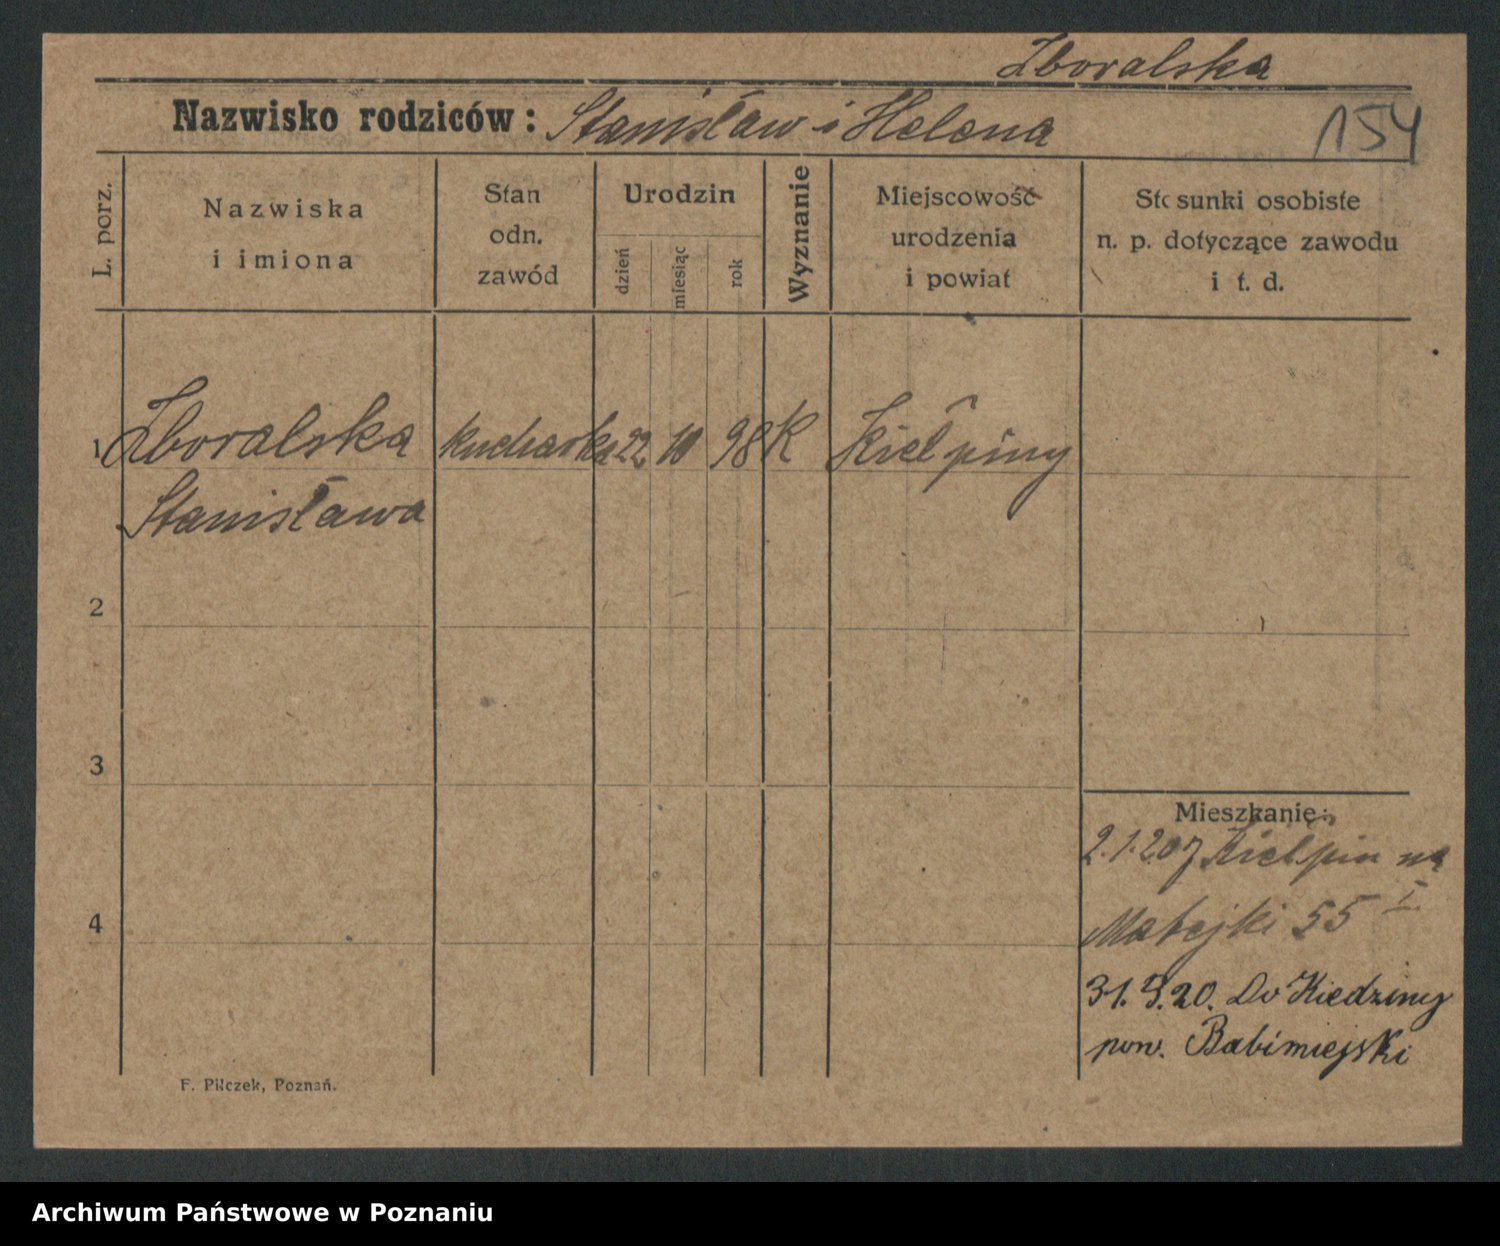 Zboralska
Nazwisko rodziców: Stanisław i Helena
154
L. porz.
Nazwiska
i imiona
Stan
odn.
zawód
Urodzin
dzień
miesiąc
rok
Wyznanie
Miejscowość
urodzenia
i powiat
Stosunki osobiste
n. p. dotyczące zawodu
i t. d.
1 Zboralska kucharka 22 10 98 K Kiełpiny
Stanisława
2
3
4
Mieszkanie:
2.1.20 z Kiełpin na
Matejki 55 I
31.3.20. Do Kiedziny
pow. Babimiejski
F. Pilczek, Poznań.
Archiwum Państwowe w Poznaniu